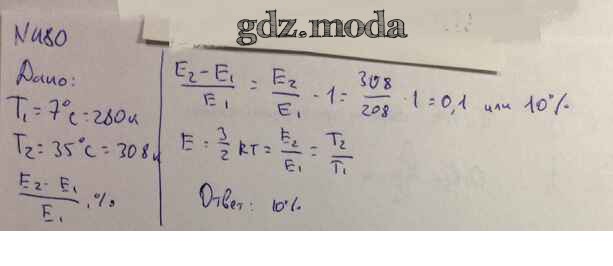 gdz.moda
N480
Дано:
T₁ = 7°C = 280к
T₂ = 35°C = 308к
(E₂ - E₁)/E₁, %
(E₂ - E₁)/E₁ = E₂/E₁ · 1 = 308/208 · 1 = 0,1 или 10%
E = 3/2 кT = E₂/E₁ = T₂/T₁
Ответ: 10%